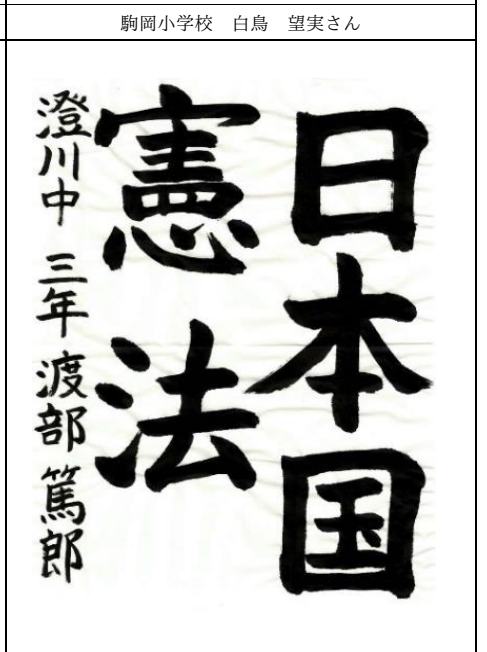 駒岡小学校　白鳥　望実さん
日本国
憲法
澄川中　三年　渡部　篤郎